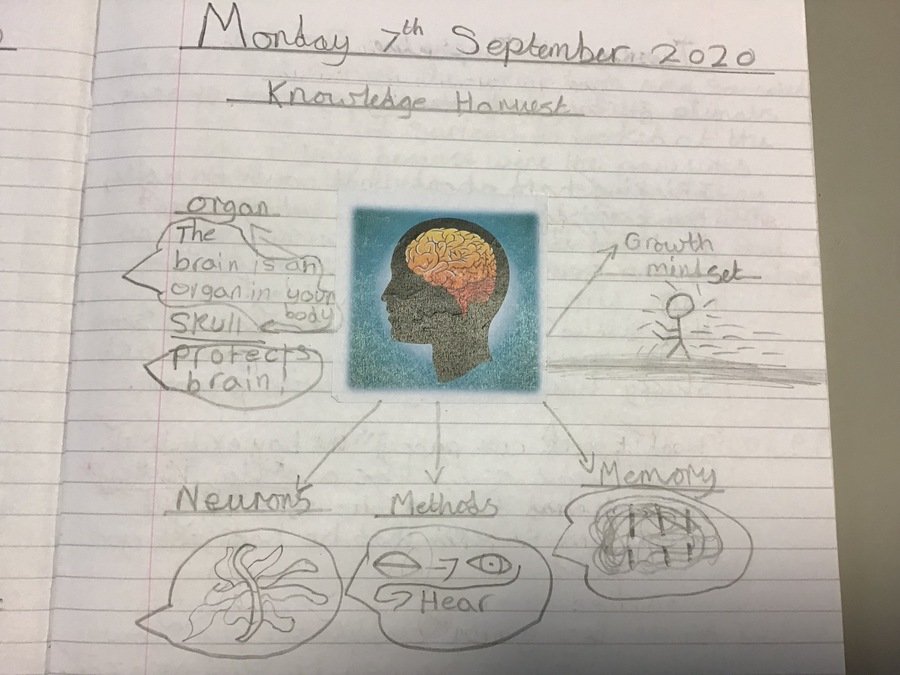 Monday 7th September 2020
Knowledge Harvest
organ
The
brain is an
organ in your
body
Skull
Protects
brain
Growth
mindset
Neurons
Methods
Hear
Memory